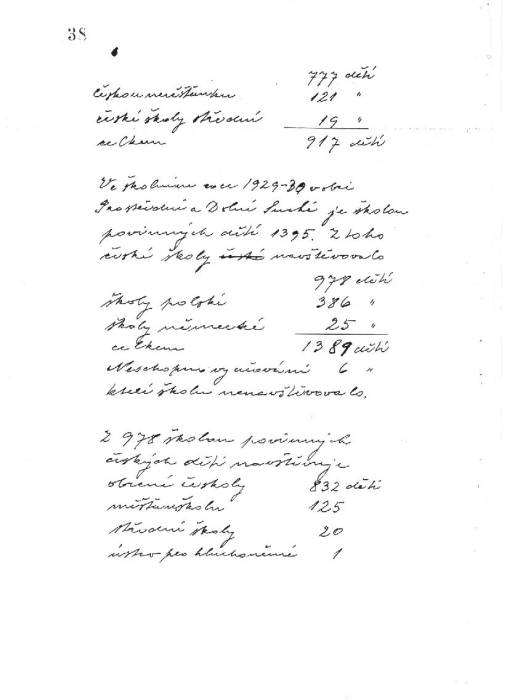 38
777 dětí
českou měšťanku 121 "
české školy střední 19 "
celkem 917 dětí
Ve školním roce 1929-30 v obci
Prostřední a Dolní Suché je školou
povinných dětí 1395. Z toho
české školy české navštěvovalo
978 dětí
školy polské 386 "
školy německé 25 "
celkem 1389 dětí
Neschopno vyučování 6 "
kteří školu nenavštěvovalo.
Z 978 školou povinných
českých dětí navštěvuje
obecné české školy 832 dětí
měšťanskou 125
střední školy 20
ústav pro hluchoněmé 1